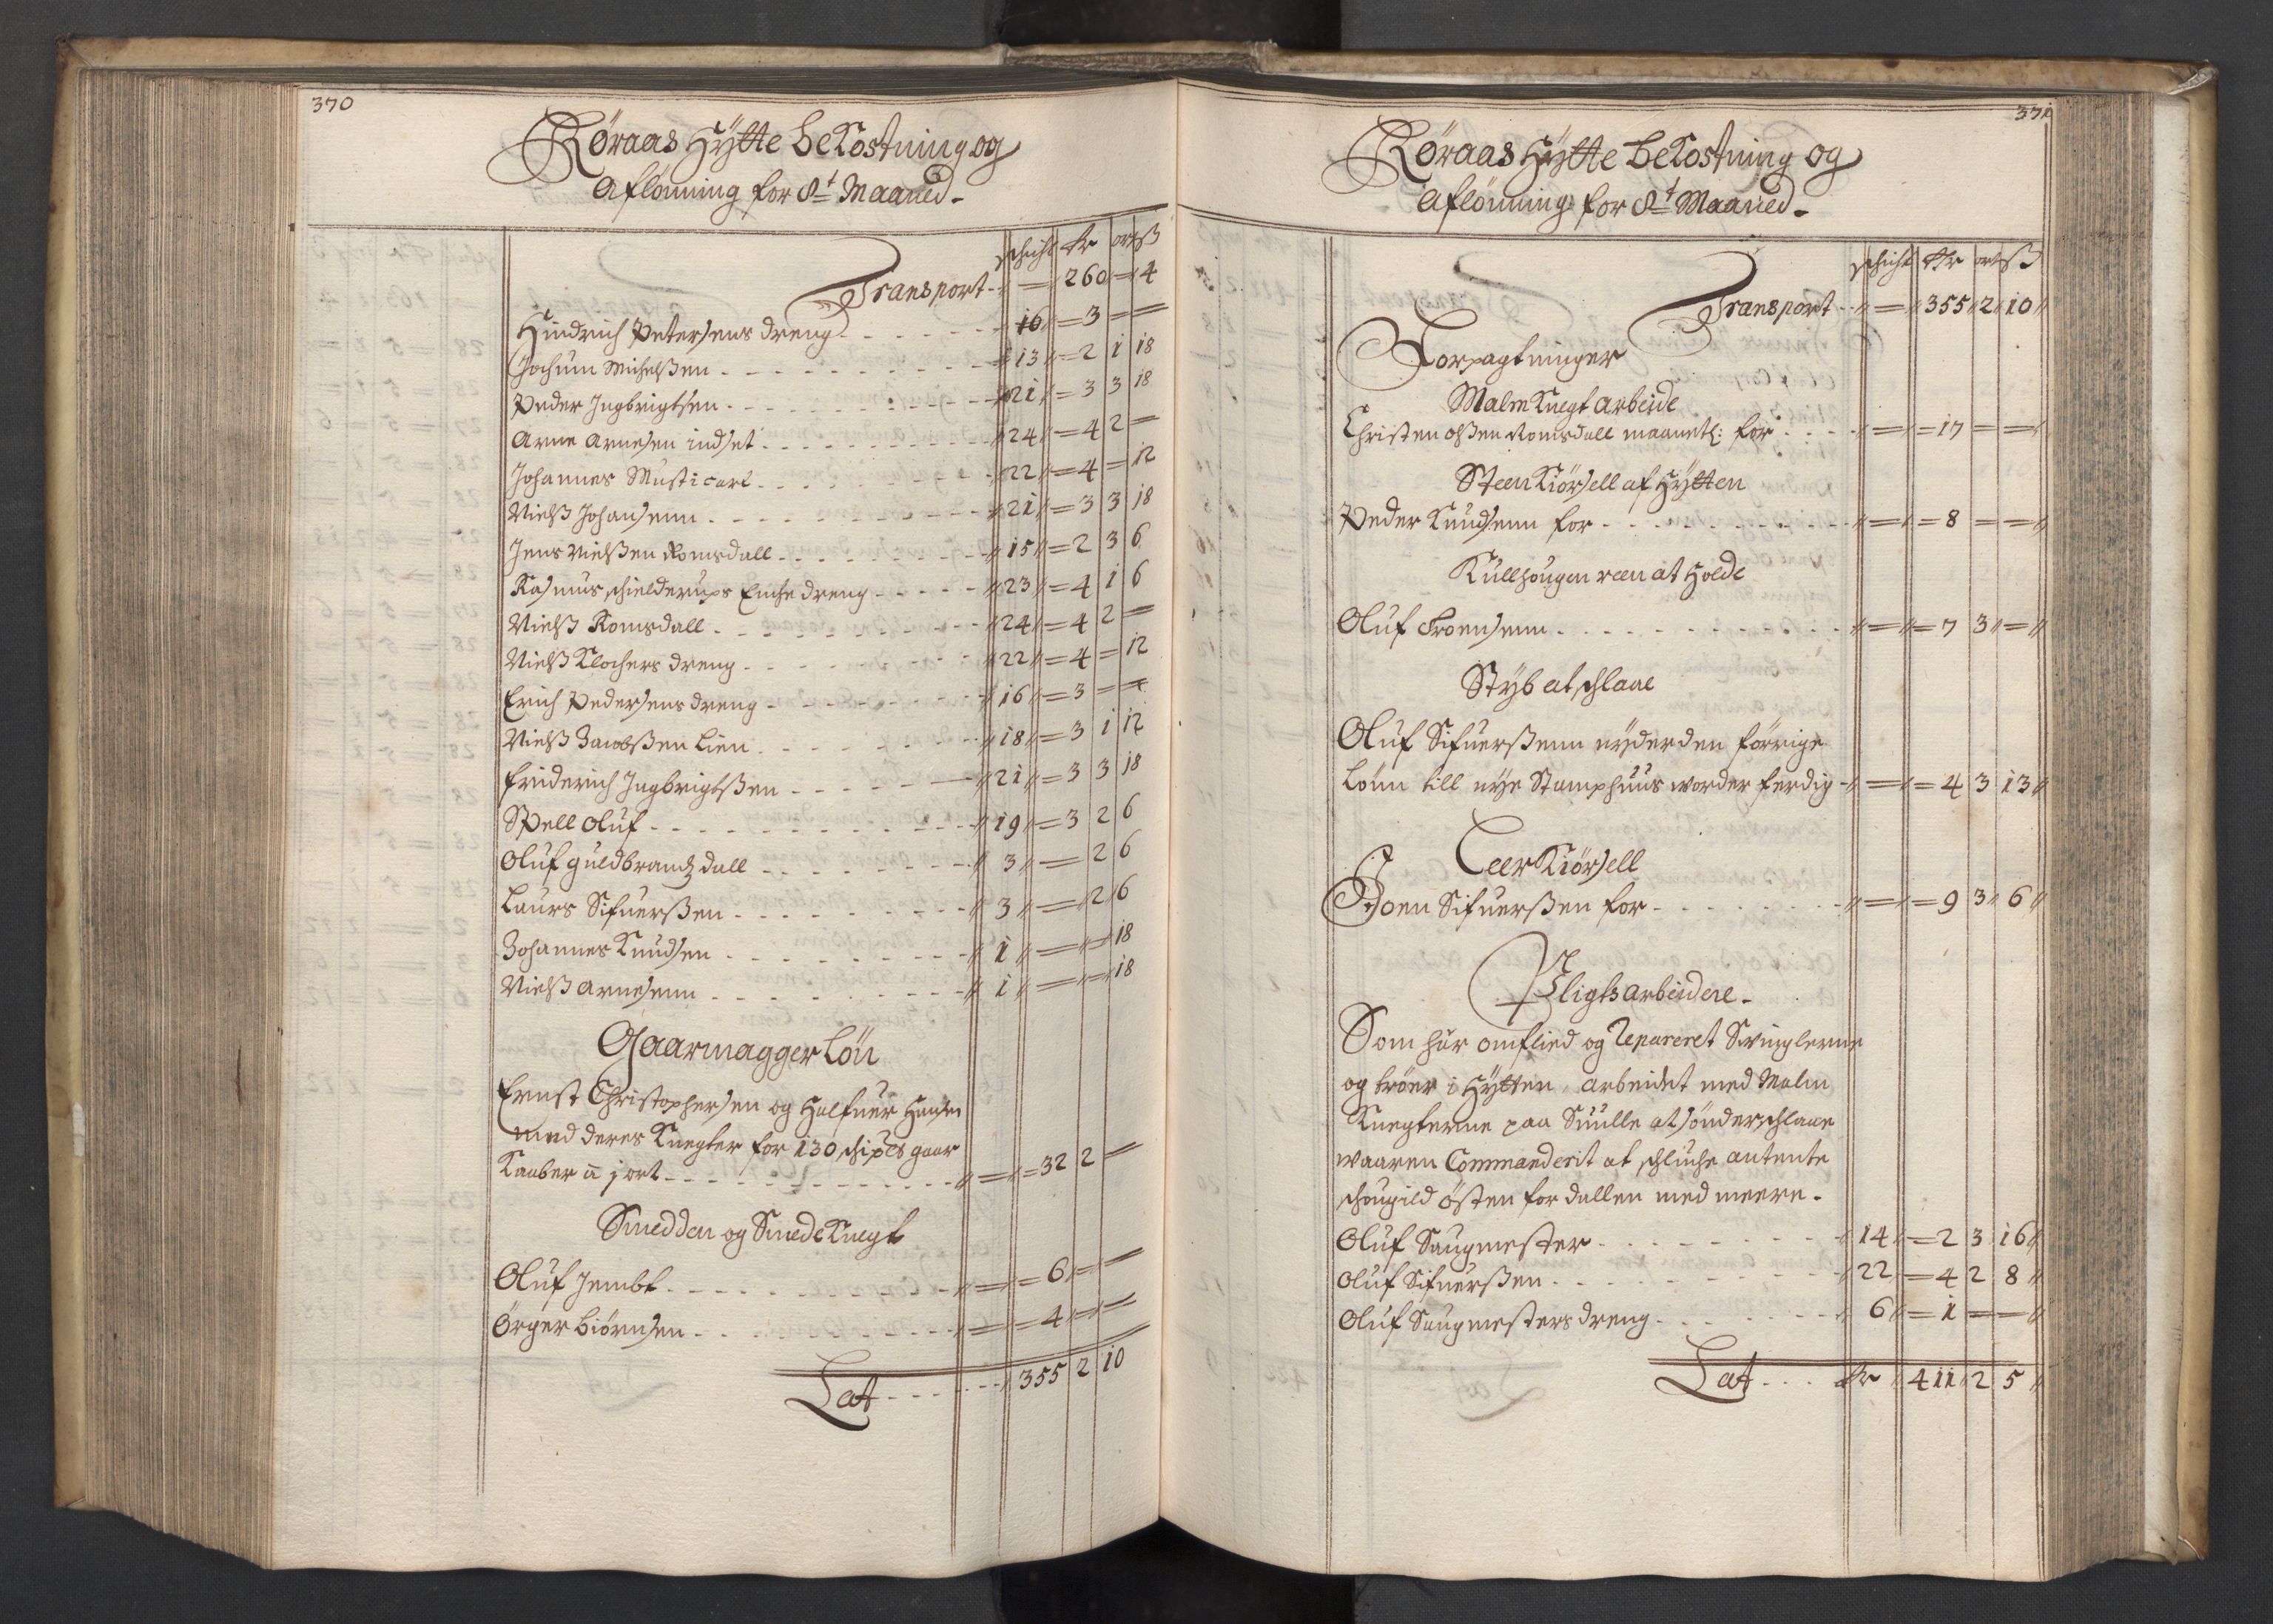 370
Røraas Hÿtte beKostning og
Aflønning for 8t Maaned.
schicht Rr ort ß
Transport - = 260 = 4
Hindrich Petersens dreng - 16 = 3 = =
Jochum Michelßen - 13 = 2 1 18
Peder Ingbrigtsen - 21 = 3 3 18
Arne Arnesen indset - 24 = 4 2 =
Johannes Musticart - 22 = 4 = 12
Nielß Johansenn - 21 = 3 3 18
Jens Nielßen Romsdall - 15 = 2 3 6
Rasmus schielderups Enche dreng - 23 = 4 1 6
Nielß Romsdall - 24 = 4 2 =
Nielß Klochers dreng - 22 = 4 = 12
Erich Pedersens dreng - 16 = 3 = =
Nielß Jacobßen Lien - 18 = 3 1 12
Friderich Ingbrigtßen - 21 = 3 3 18
SPell Oluf - 19 = 3 2 6
Oluf guldbrandz dall - 3 = 2 6
Laurs Sifuerßen - 3 = 2 6
Johannes Knudsen - 1 = = 18
Nielß Arnesenn - 1 = = 18
Gaarmagger Løn
Ernst Christophersen og Halfuer Hansen
med deres Knegter for 130 schip℔ gaar
Kaaber a j ort - = = 32 2 =
Smedden og SmedeKnegt
Oluf Jembt - = = 6 = =
Örger biörnsen - = = 4 = =
Lat - 355 2 10
371
Røraas Hÿtte beKostning og
Aflønning for 8t Maaned.
schicht Rr ort ß
Transport - = 355 2 10
Forpagtninger
MalmKnegt Arbeide
Christen Olßen Romsdall maanetl: for - = = 17 = =
SteenKiörsell af Hÿtten
Peder Knudsenn for - = = 8 = =
Kullhougen reen at Holde
Oluf Froensenn - = = 7 3 =
Stÿb at schlaae
Oluf Sifuerßenn nÿder den forrige
Lönn till nÿe Stamphuus worder ferdig - = = 4 3 13
LeerKiörsell
Joen Sifuerßen for - = = 9 3 6
Fligtsarbeidere.
Som har omflied og Repareret Svinglerne
og tröer i Hÿtten arbeidet med Malm
Knegterne paa Suulle at sönderschlaae
waaren Commanderit at schluche antente
schougild östen for dallen med meere.
Oluf Saugmester - 14 = 2 3 16
Oluf Sifuerßen - 22 = 4 2 8
Oluf Saugmesters dreng - 6 = 1 = =
Lat - Rr 411 2 5